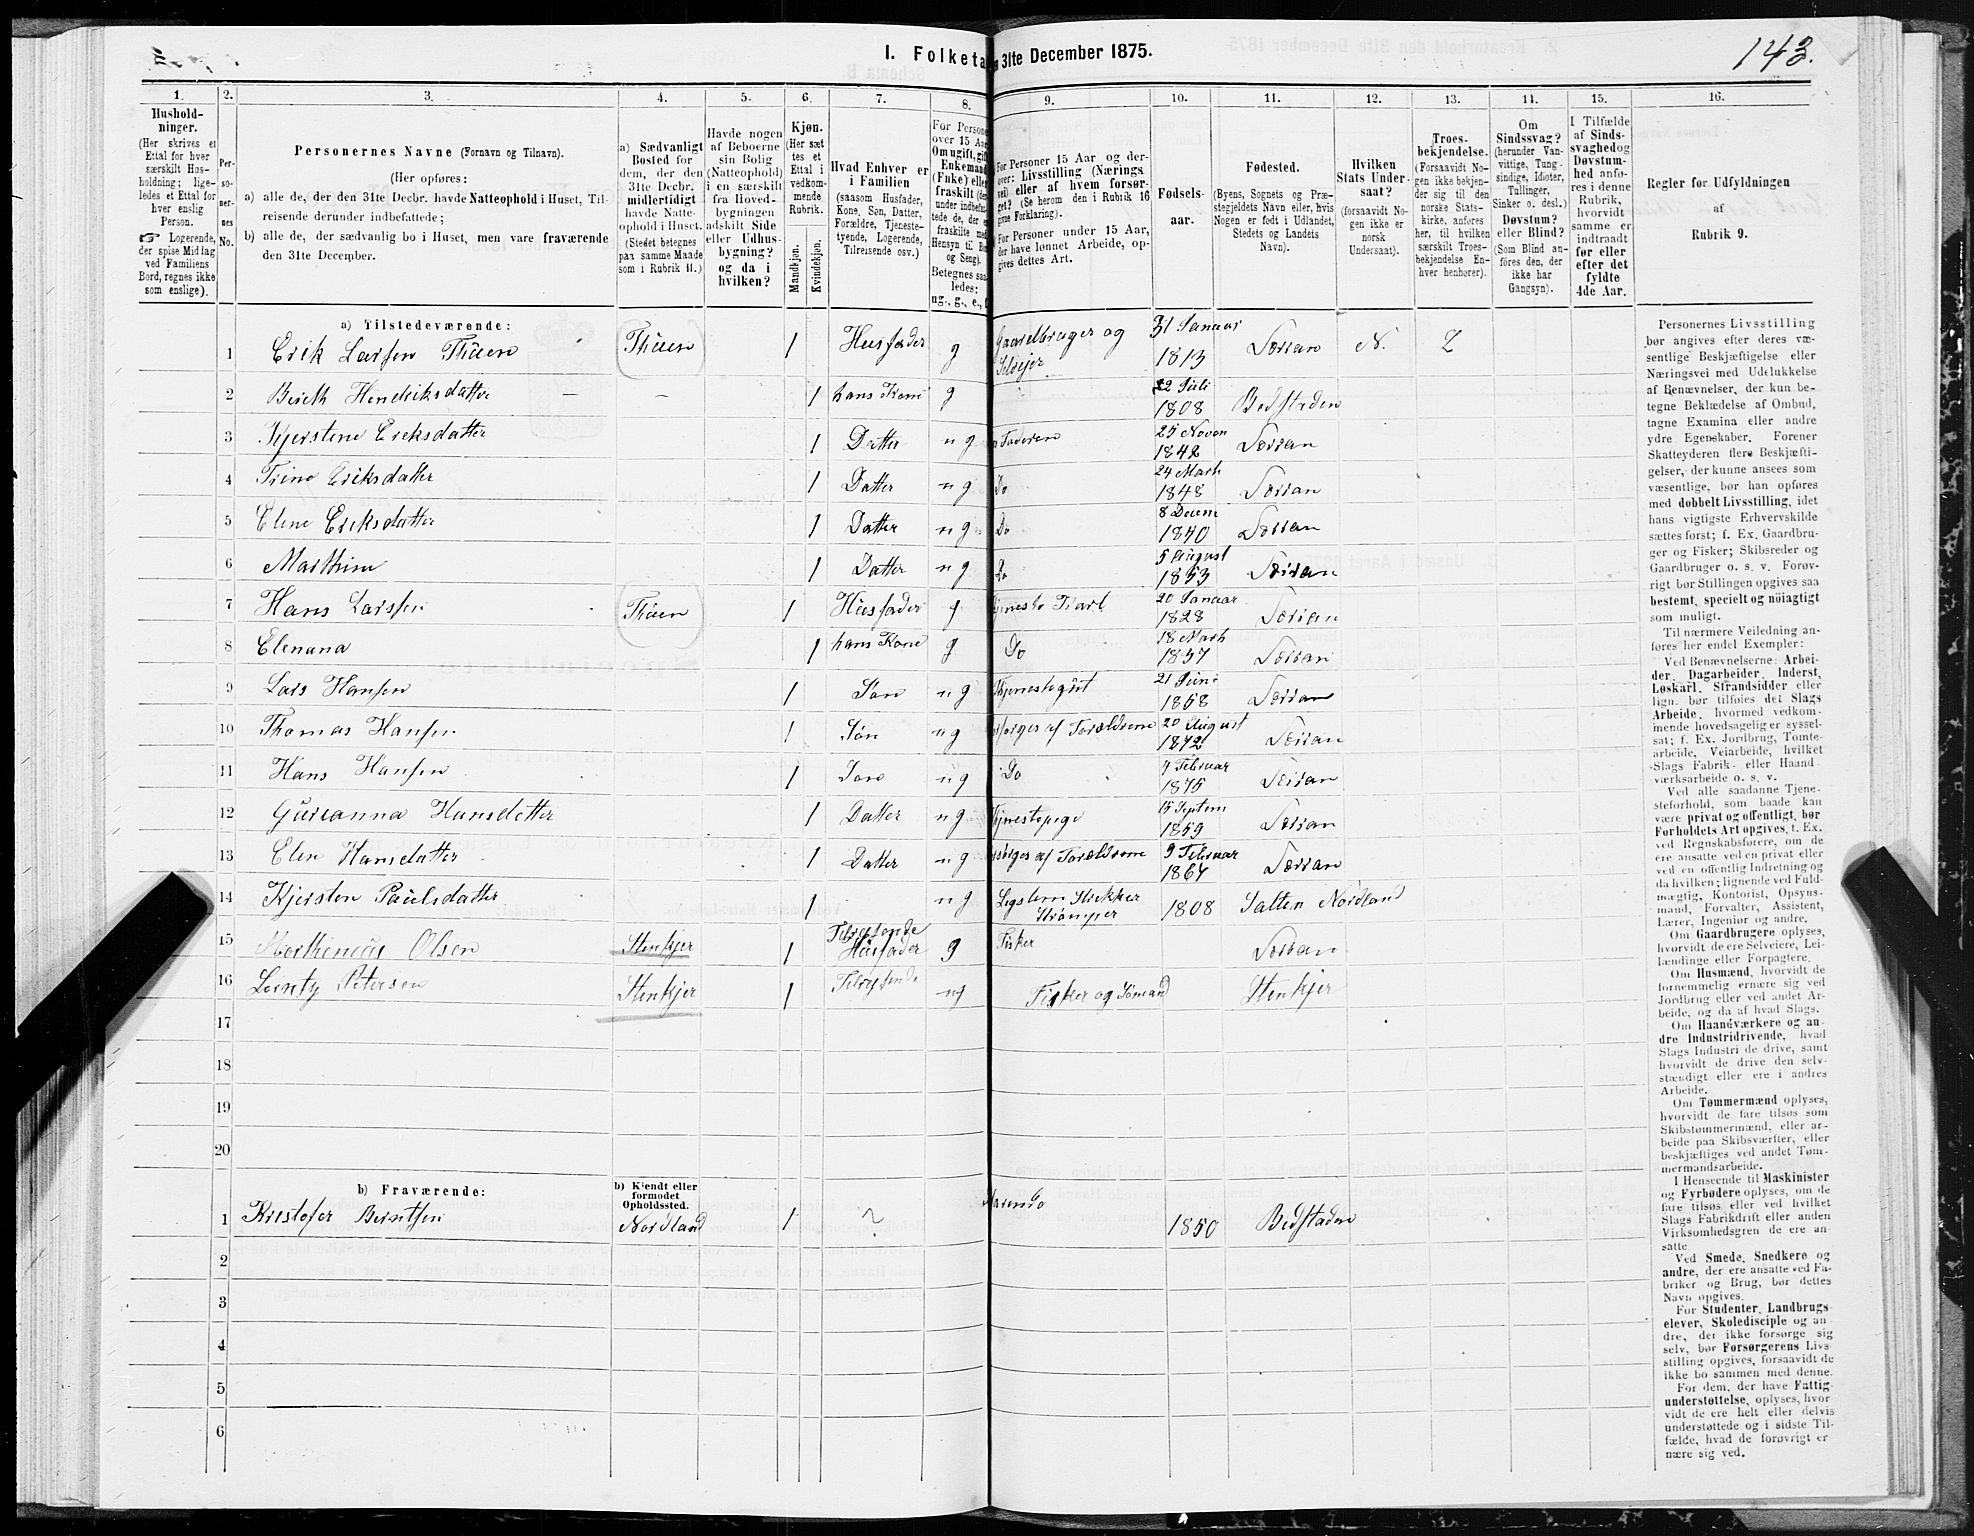 I. Folketa
31te December 1875.
143.
1.
2.
3.
4.
5.
6.
7.
8.
9.
10.
11.
12.
13.
14.
15.
16.
Hushold-
ninger.
(Her skrives et
Ettal for hver
særskilt Hus-
holdning; lige-
ledes et Ettal for
hver enslig
Person.
☞ Logerende,
der spise Middag
ved Familiens
Bord, regnes ikke
som enslige).
Per-
so-
ner-
nes
No.
Personernes Navne (Fornavn og Tilnavn).
(Her opføres:
a) alle de, der den 31te Decbr. havde Natteophold i Huset, Til-
reisende derunder indbefattede;
b) alle de, der sædvanlig bo i Huset, men vare fraværende
den 31te December.
a) Sædvanligt
Bosted for
dem, der den
31te Decbr.
midlertidigt
havde Natte-
ophold i Huset.
(Stedet betegnes
paa samme Maade
som i Rubrik 11.)
Havde nogen
af Beboerne
sin Bolig
(Natteophold)
i en særskilt
fra Hoved-
bygningen
adskilt Side
eller Udhus-
bygning?
og da i
hvilken?
Kjøn.
(Her sæt-
tes et
Ettal i
vedkom-
mende
Rubrik.
Mandkjøn.
Kvindekjøn.
Hvad Enhver er
i Familien
(saasom Husfader,
Kone, Søn, Datter,
Forældre, Tjeneste-
tyende, Logerende,
Tilreisende osv.)
For Persone
over 15 Aar
Om ugift, gift,
Enkemand
(Enke) eller
fraskilt (der-
under indbefat-
tede de, der er
fraskilte med
Hensyn til Bo
og Seng).
Betegnes saa-
ledes:
ug., g., e., f.
For Personer 15 Aar og der-
over: Livsstilling (Nærings
vei) eller af hvem forsør-
get? (Se herom den i Rubrik 16
givne Forklaring).
For Personer under 15 Aar,
der have lønnet Arbeide, op-
gives dettes Art.
Fødsels-
aar.
Fødested.
(Byens, Sognets og Præ-
stegjeldets Navn eller, hvis
Nogen er født i Udlandet,
Stedets og Landets
Navn).
Hvilken
Stats Under-
saat?
(forsaavidt No-
gen ikke er
norsk
Undersaat).
Troes-
bekjendelse.
(Forsaavidt No-
gen ikke bekjen-
der sig til den
norske Stats-
kirke, anføres
her, til hvilken
særskilt Troes-
bekjendelse En-
hver henhører).
Om
Sindssvag?
(herunder Van-
vittige, Tung-
sindige, Idioter,
Tullinger,
Sinker o. desl.)
Døvstum?
eller Blind?
(Som Blind an-
föres den, der
ikke har
Gangsyn).
I Tilfælde
af Sinds-
svaghed og
Døvstum-
hed anfø-
res i denne
Rubrik,
hvorvidt
samme er
indtraadt
før eller
efter det
fyldte
4de Aar.
Regler for Udfyldningen
af
Rubrik 9.
a) Tilstedeværende:
1 Erik Larsen Thuen Thuen 1 Husfader g Gaardbruger og Selveier 31 Januar 1813 Sørsan N. 2
2 Berith Hendriksdatter - - 1 hans Kone g 22 Juli 1808 Bedstaden
3 Kjerstene Eriksdatter 1 Datter ug Faderen 25 Noven 1842 Sørsan
4 Trine Eriksdatter 1 Datter ug Do 24 Marh 1848 Sørsan
5 Elene Eriksdatter 1 Datter ug Do 8 Decem 1840 Sørsan
6 Marthine 1 Datter ug Do 5 August 1853 Sørsan
7 Hans Larsen Thuen 1 Husfader g 20 Januar 1828 Sørsan
8 Elenana 1 hans Kone g Do 18 Marh 1837 Sørsan
9 Lars Hansen 1 Søn ug Tjenestegut 21 Juni 1858 Sørsan
10 Thomas Hansen 1 Søn ug forsørges af Forældrene 20 August 1872 Sørsan
11 Hans Hansen 1 Søn ug Do 4 Februar 1875 Sørsan
12 Gurianna Hansdatter 1 Datter ug Tjenestepige 15 Septem 1859 Sørsan
13 Elen Hansdatter 1 Datter ug forsørges af Forældrene 9 Februar 1864 Sørsan
14 Kjersten Paulsdatter 1 ug Legslem Strikker Strømper 1808 Salten Nordland
15 Marthinus Olsen Stenkjer 1 Tilreisende Husfader g Fisker Sørsan
16 Lentz Petersen Stenkjer 1 Tilreisende ug Fisker og Sømand Stenkjer
17
18
19
20
b) Fraværende:
b) Kjendt eller
formodet
Opholdssted.
1 Kristofer Berntsen Nordland 1 ? 1850 Bedstaden
2
3
4
5
6
Personernes Livsstilling
bør angives efter deres væ-
sentlige Beskjæftigelse eller
Næringsvei med Udelukkelse
af Benævnelser, der kun be-
tegne Beklædelse af Ombud,
tagne Examina eller andre
ydre Egenskaber. Forener
Skatteyderen flere Beskjæfti-
gelser, der kunne ansees som
væsentlige, bør han opføres
med dobbelt Livsstilling, idet
hans vigtigste Erhvervskilde
sættes først; f. Ex. Gaardbru-
ger og Fisker; Skibsreder og
Gaardbruger o. s. v. Forøv-
rigt bør Stillingen opgives saa
bestemt, specielt og nöiagtigt
som muligt.
Til nærmere Veiledning an-
føres her endel Exempler:
Ved Benævnelserne: Arbei-
der, Dagarbeider, Inderst,
Løskarl, Strandsidder eller
lign. bør tilføies det Slags
Arbeide, hvormed vedkom-
mende hovedsagelig er syssel-
sat; f. Ex. Jordbrug, Tomte-
arbeide, Veiarbeide, hvilket
Slags Fabrik- eller Haand
værksarbeide o. s. v.
Ved alle saadanne Tjene-
steforhold, som baade kan
være privat og offentligt, bør
Forholdets Art opgives, t. Ex.
ved Regnskabsførere, om de
ere ansatte ved en privat eller
ved en offentlig Indretning og
da hvilken; lignende ved Fuld-
mægtig, Kontorist, Opsyns-
mand, Forvalter, Assistent,
Lærer, Ingeniør og andre.
Om Gaardbrugere opgives,
hvorvidt de ere Selveiere, Lei-
lændinge eller Forpagtere.
Om Husmænd, hvorvidt de
fornemmelig ernære sig ved
Jordbrug eller ved andet Ar-
beide, og da af hvad Slags.
Om Haandværkere og an-
dre Industridrivende, hvad
Slags Industri de drive, samt
hvorvidt de drive den selv-
stændigt eller ere i andres
Arbeide.
Om Tømmermænd oplyses,
hvorvidt de fare tilsøs som
Skibstømmermænd, eller ar-
beide paa Skibsværfter, eller
beskjæftiges ved andet Tøm-
mermandsarbeide.
I Henseende til Maskinister
og Fyrbødere oplyses, om de
fare tilsøs eller ved hvilket
Slags Fabrikdrift eller anden
Virksomhedsgren de ere an-
satte.
Ved Smede, Snedkere og
andre, der ere ansatte ved Fa-
briker og Brug, bør dettes
Navn opgives.
For Studenter, Landbrugs-
elever, Skoledisciple og an-
dre, der ikke forsørge sig
selv, bør Forsørgerens Livs-
stilling opgives, forsaavidt de
ikke bo sammen med denne.
For dem, der have Fattig-
understøttelse, oplyses, hvor-
vidt de ere helt eller delvis
understøttede og i sidste Til-
fælde, hvad de forøvrigt er-
nære sig ved.